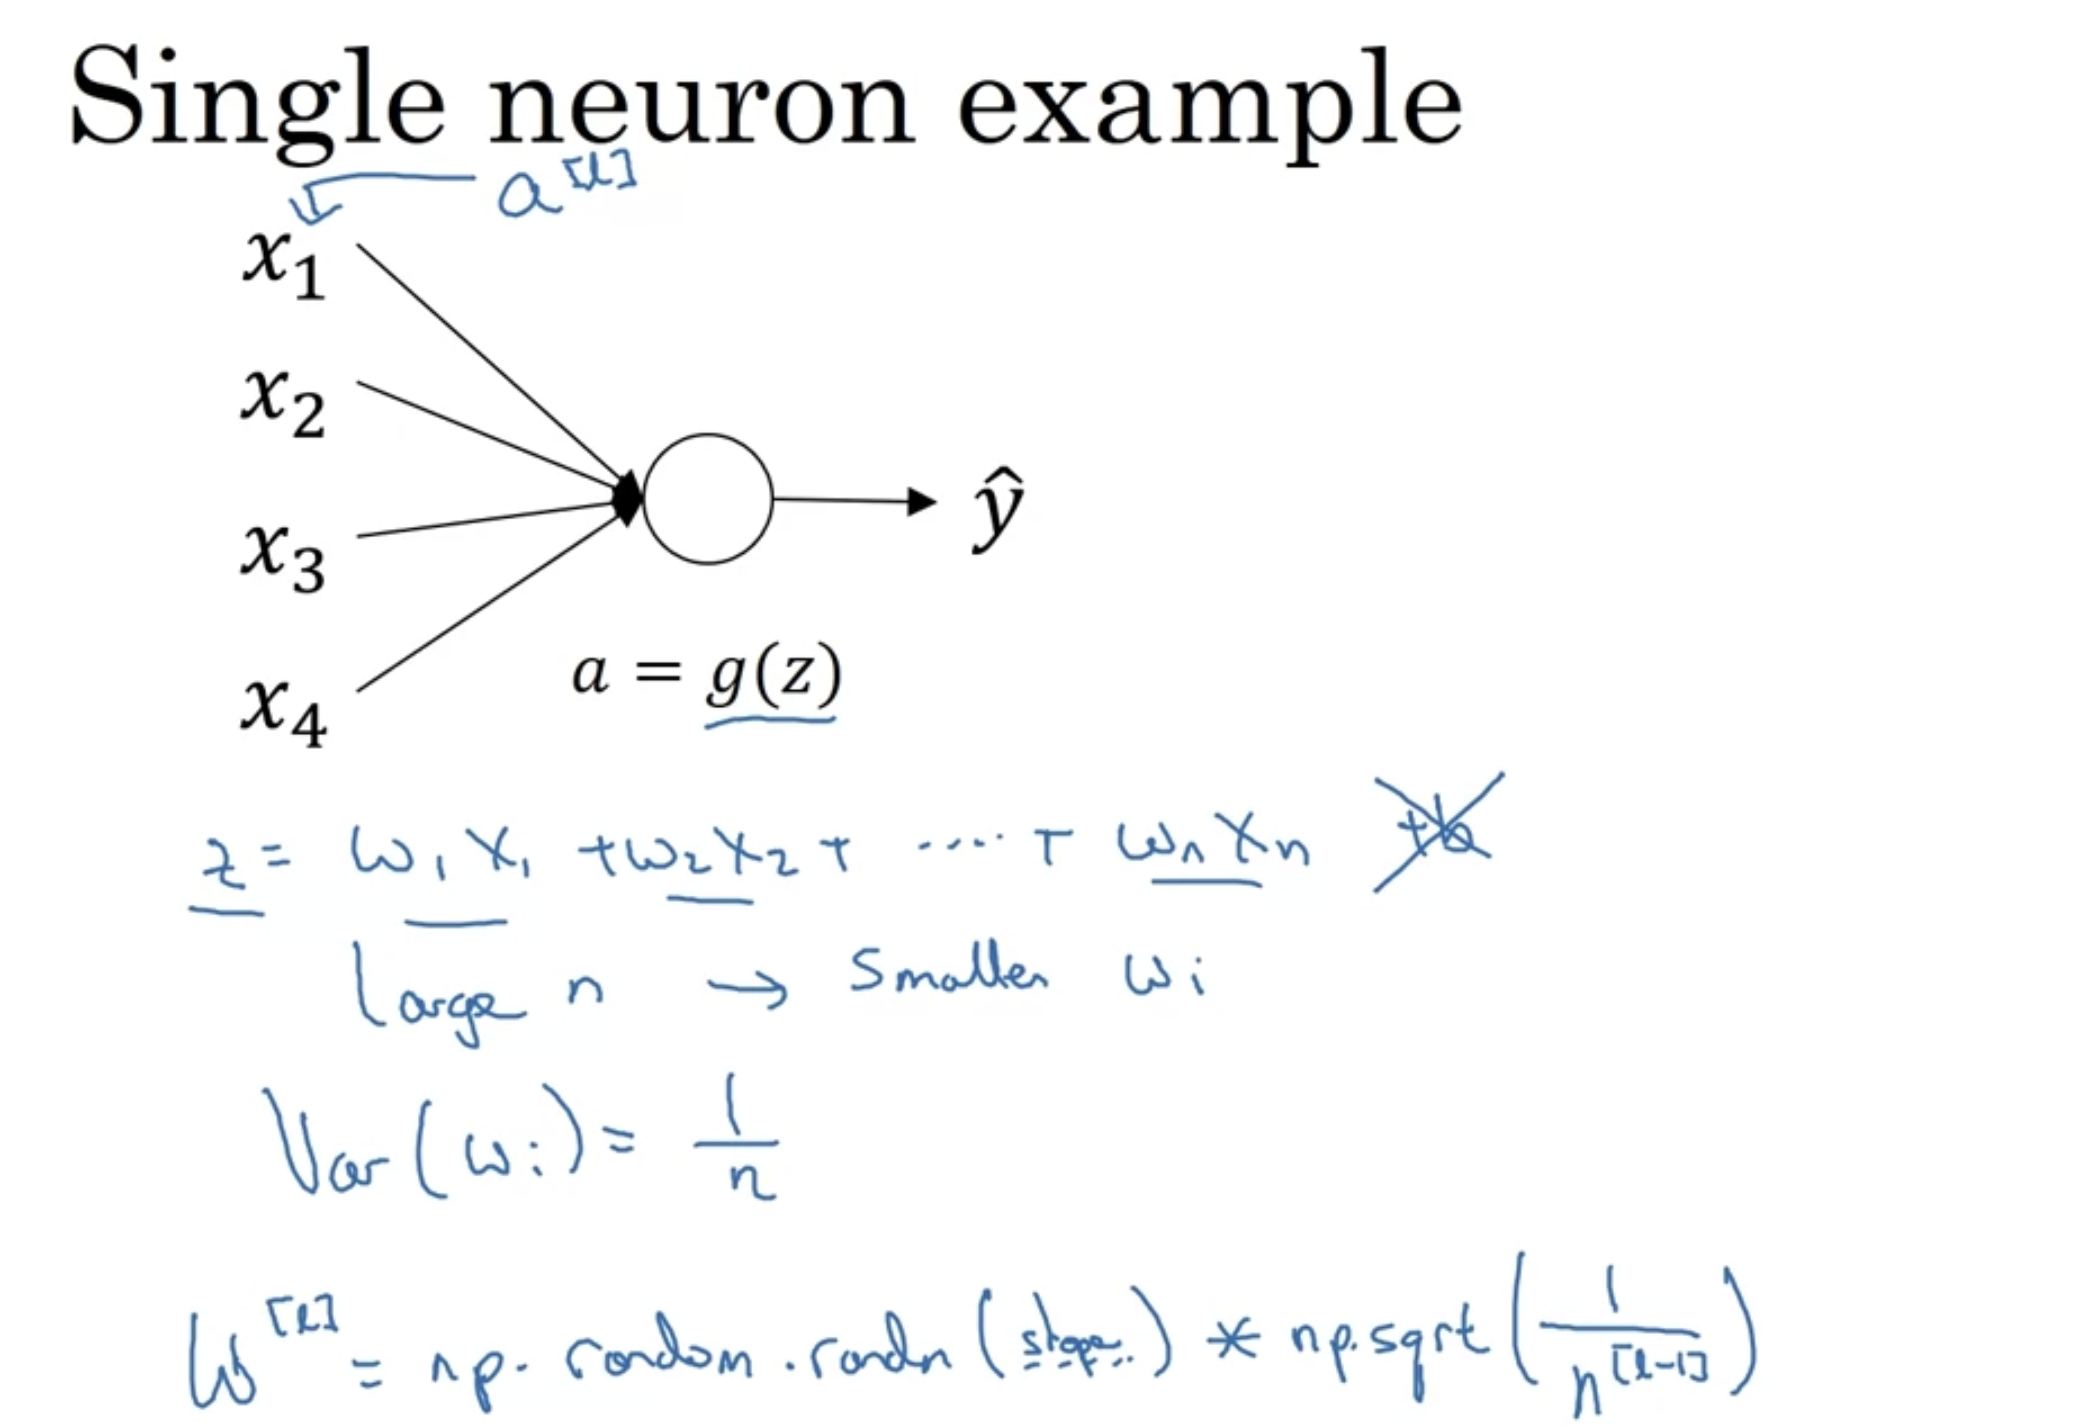 Single neuron example
a^[l]
x₁
x₂
x₃
x₄
ŷ
a = g(z)
z = w₁x₁ + w₂x₂ + ..... + wₙxₙ +b
Large n → Smaller wi
Var(wi) = 1/n
W^[l] = np.random.randn(shape..) * np.sqrt(1/n^[l-1])